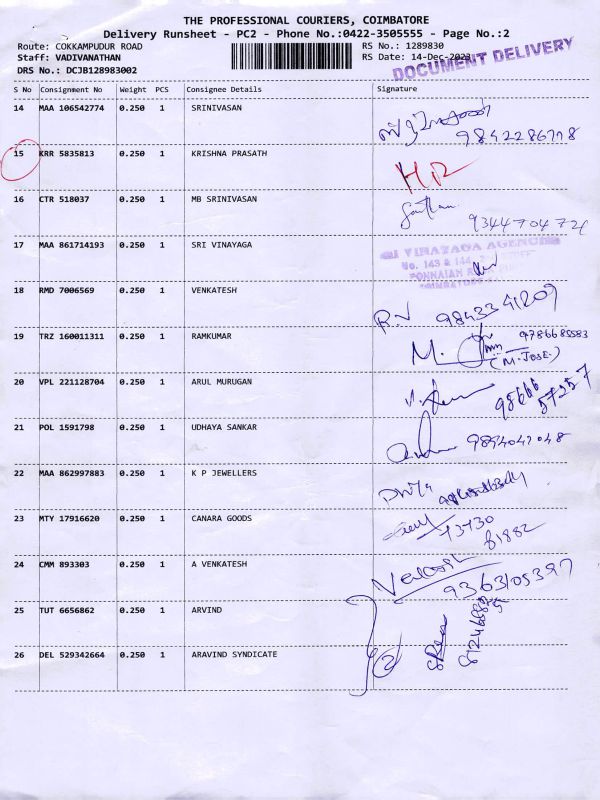 THE PROFESSIONAL COURIERS, COIMBATORE
Delivery Runsheet - PC2 - Phone No.:0422-3505555 - Page No.:2
Route: COKKAMPUDUR ROAD RS No.: 1289830
Staff: VADIVANATHAN RS Date: 14-Dec-2023
DRS No.: DCJB128983002 DOCUMENT DELIVERY
S No Consignment No Weight PCS Consignee Details Signature
14 MAA 106542774 0.250 1 SRINIVASAN
15 KRR 5835813 0.250 1 KRISHNA PRASATH
16 CTR 518037 0.250 1 MB SRINIVASAN
9344704721
17 MAA 861714193 0.250 1 SRI VINAYAGA
VINAYAGA AGENCIES
No. 143 & 144
PONNAIAH
18 RMD 7006569 0.250 1 VENKATESH
R.V 9843341209
19 TRZ 160011311 0.250 1 RAMKUMAR 9786685583
M. (M.JOSE.)
20 VPL 221128704 0.250 1 ARUL MURUGAN
98666
57257
21 POL 1591798 0.250 1 UDHAYA SANKAR
9894041048
22 MAA 862997883 0.250 1 K P JEWELLERS
23 MTY 17916620 0.250 1 CANARA GOODS
73730
81882
24 CMM 893303 0.250 1 A VENKATESH
Venkatesh
9363105397
25 TUT 6656862 0.250 1 ARVIND
26 DEL 529342664 0.250 1 ARAVIND SYNDICATE
2